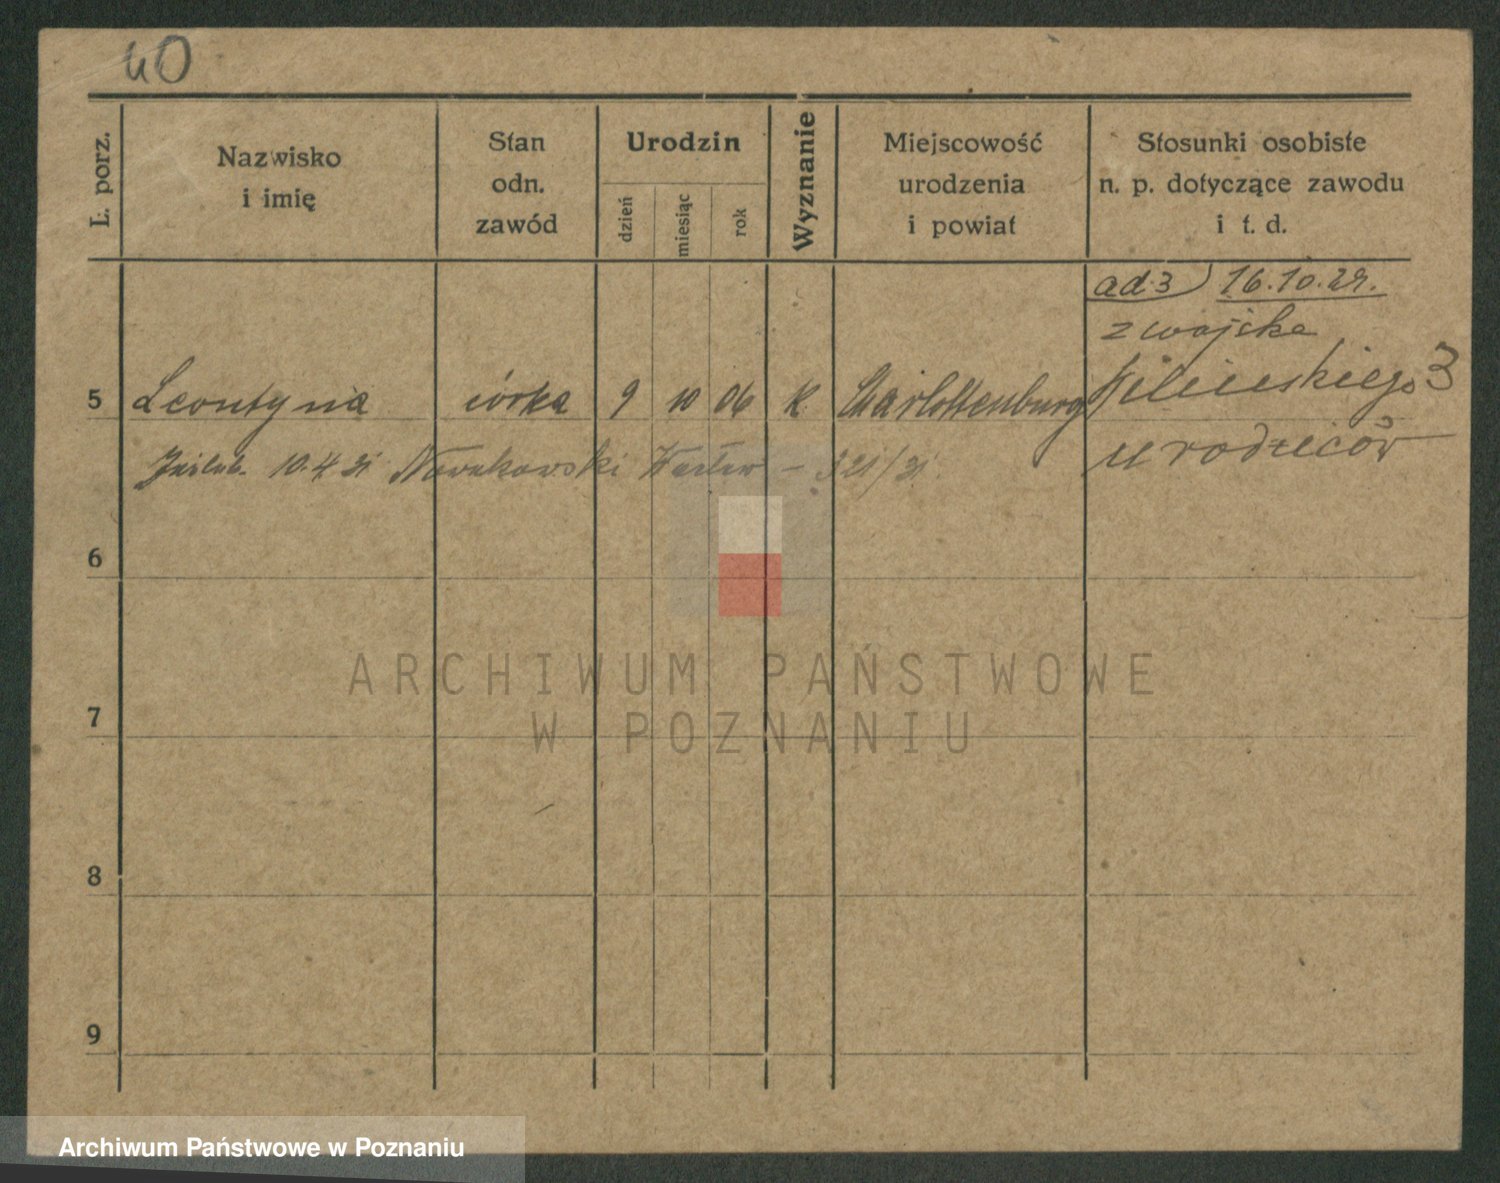 40
L. porz.
Nazwisko
i imię
Stan
odn.
zawód
Urodzin
dzień
miesiąc
rok
Wyznanie
Miejscowość
urodzenia
i powiat
Stosunki osobiste
n. p. dotyczące zawodu
i t. d.
ad.3) 16.10.29.
z wojska
Kilińskiego 3
u rodziców
5 Leontyna córka 9 10 06 K. Charlottenburg
zaślub. 10.4.31 Nowakowski Wacław – 321/31.
6
7
8
9
ARCHIWUM PAŃSTWOWE
W POZNANIU
Archiwum Państwowe w Poznaniu